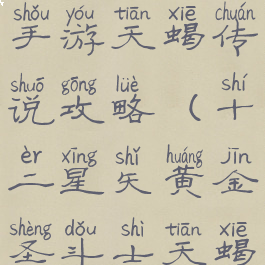 shǒu yóu tiān xiē chuán
手游天蝎传
shuō gōng lüè shí
说攻略（十
èr xīng shǐ huáng jīn
二星矢黄金
shèng dǒu shì tiān xiē
圣斗士天蝎